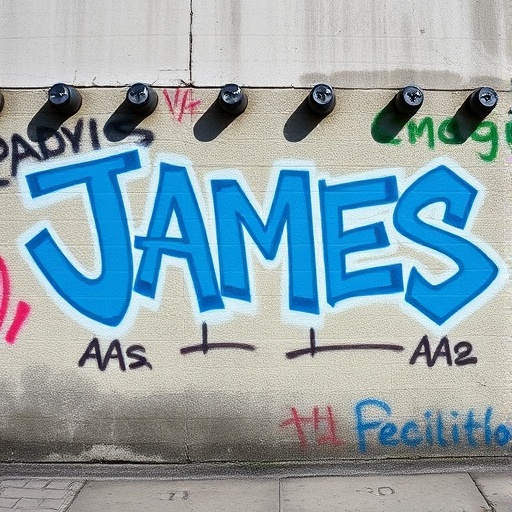 V4
PADVIS
emogi
JAMES
AAS
AA2
Fecilitlo